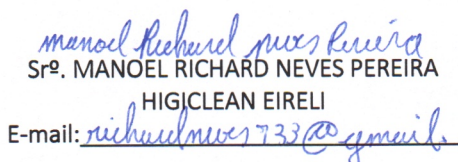 manoel Richard neves Pereira
Srº. MANOEL RICHARD NEVES PEREIRA
HIGICLEAN EIRELI
E-mail: richardneves733@gmail.